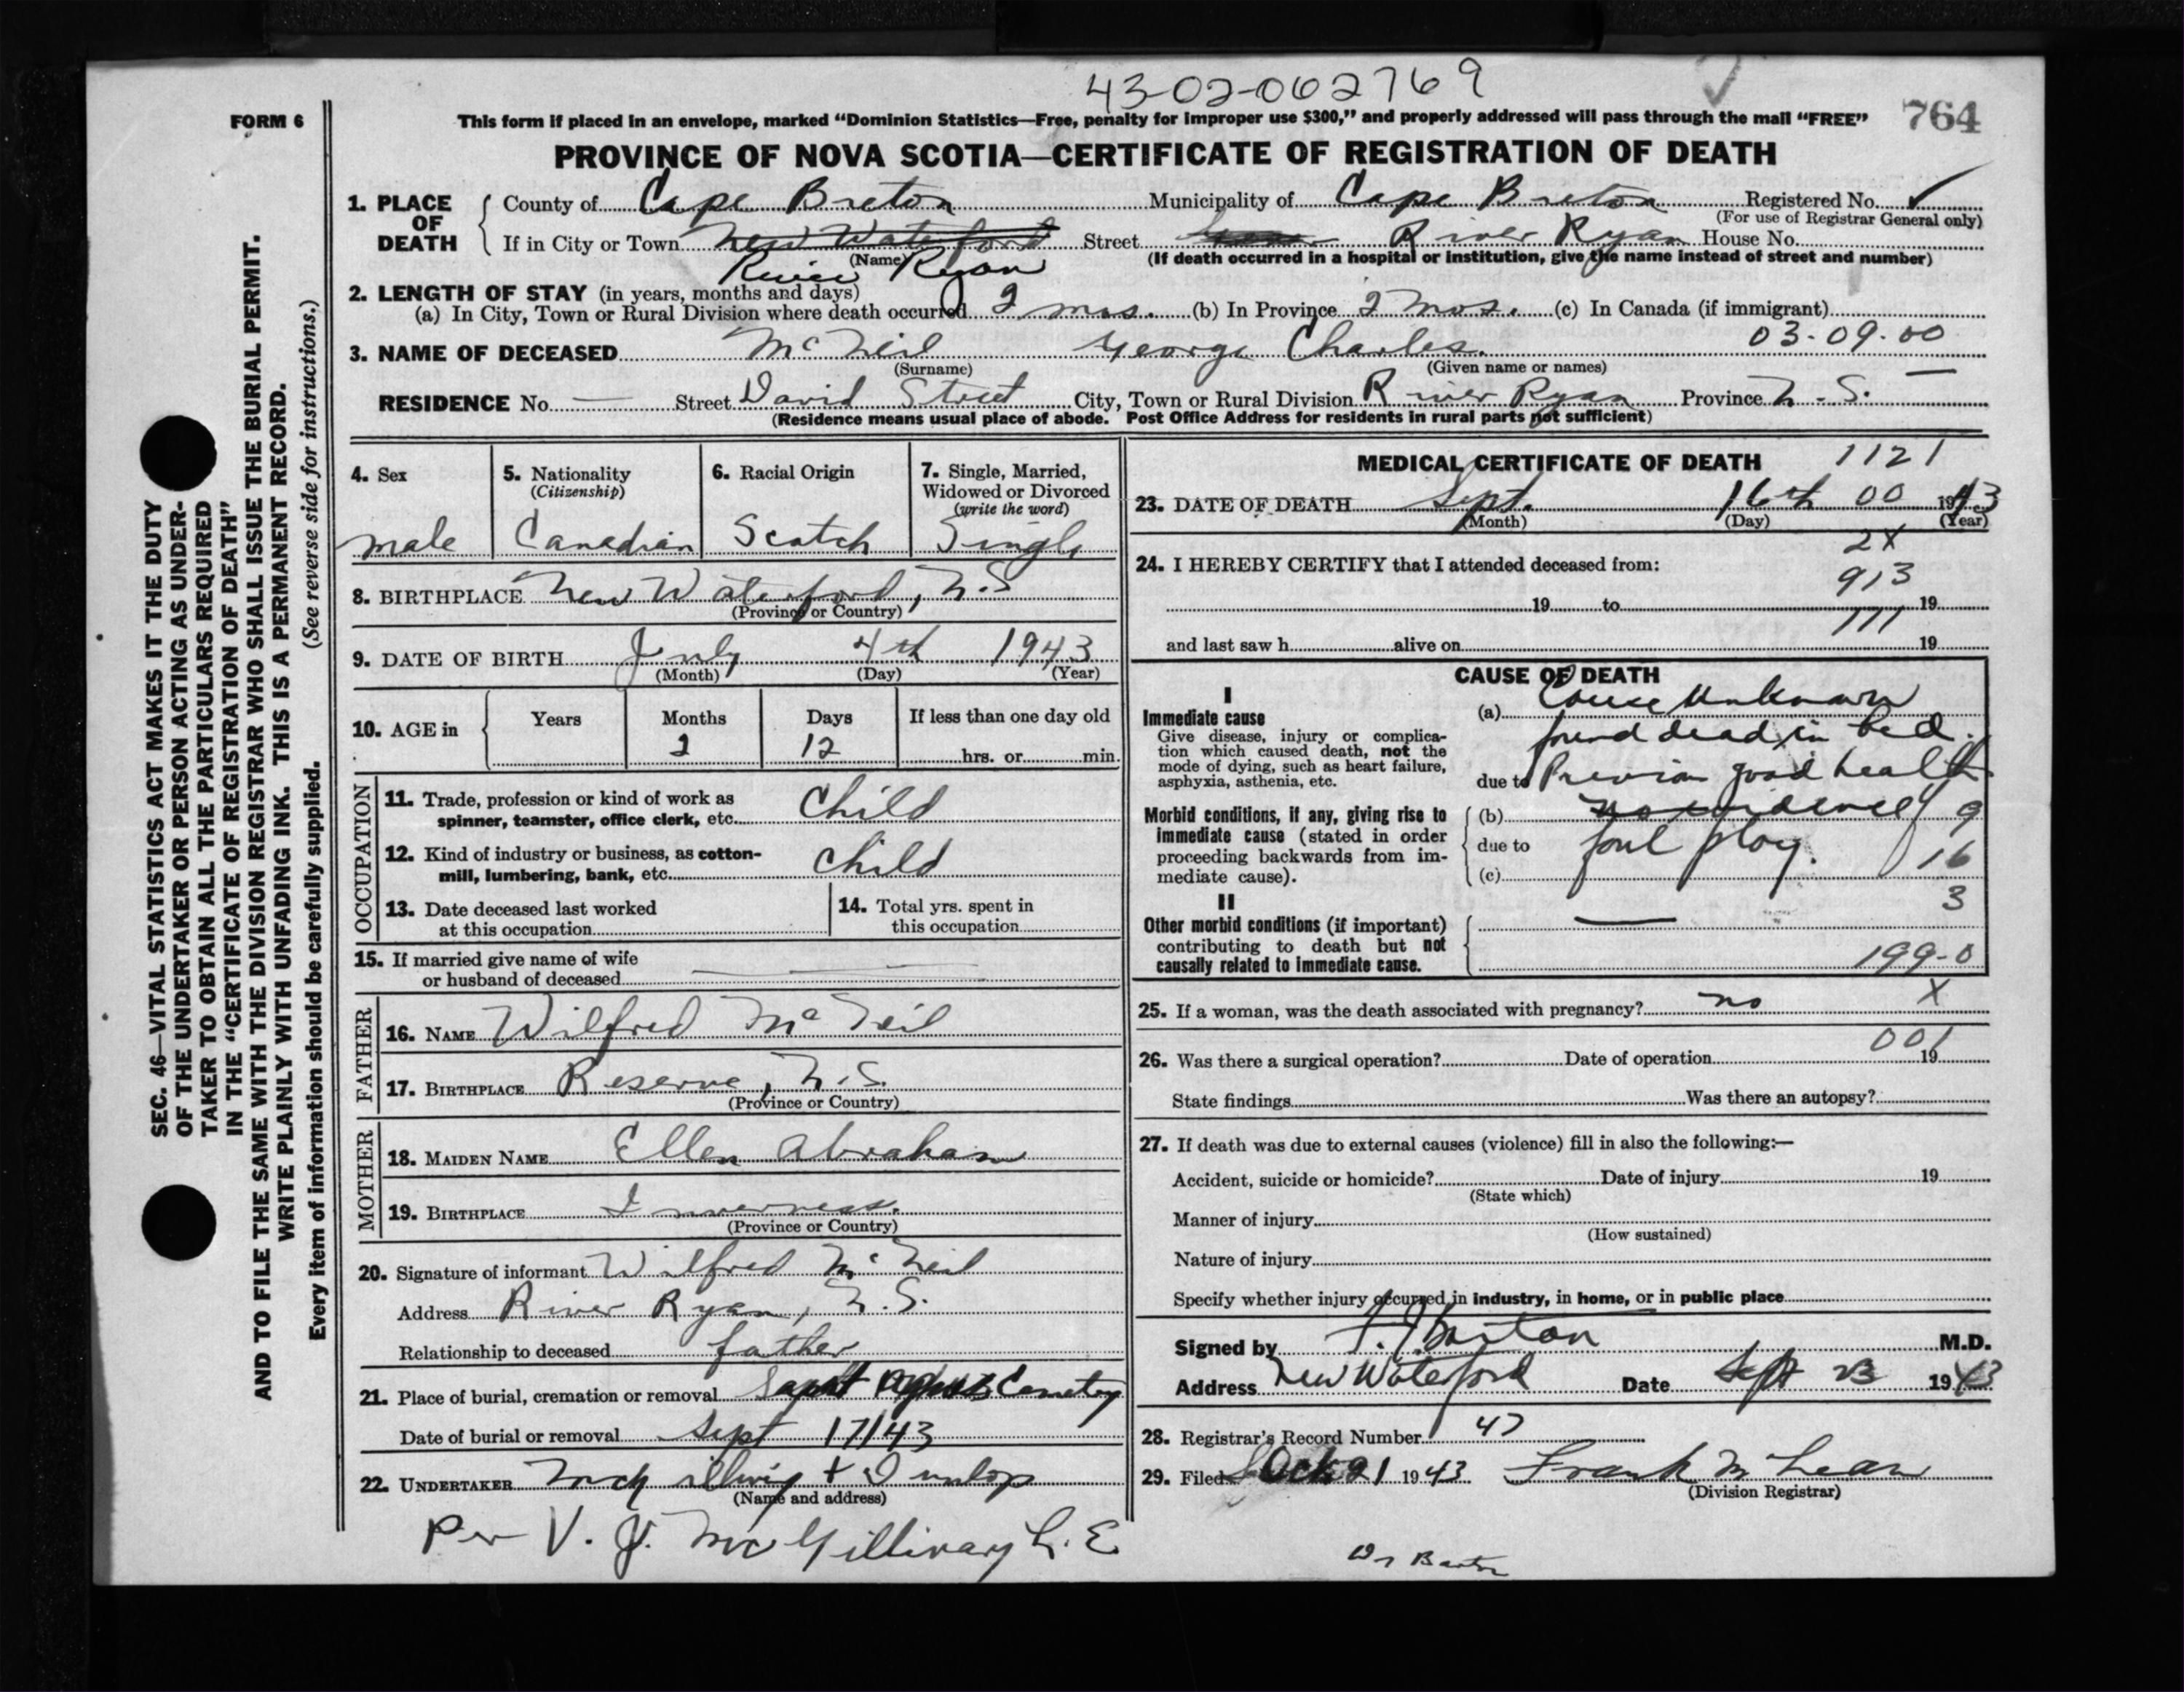 43-02-002769
FORM 6
This form if placed in an envelope, marked “Dominion Statistics—Free, penalty for improper use $300,” and properly addressed will pass through the mail “FREE” 764
PROVINCE OF NOVA SCOTIA—CERTIFICATE OF REGISTRATION OF DEATH
1. PLACE OF DEATH
County of Cape Breton Municipality of Cape Breton Registered No.
(For use of Registrar General only)
If in City or Town New Waterford Street River Ryan House No.
(Name) (If death occurred in a hospital or institution, give the name instead of street and number)
River Ryan
2. LENGTH OF STAY (in years, months and days)
(a) In City, Town or Rural Division where death occurred 2 mos. (b) In Province 2 mos. (c) In Canada (if immigrant)
03-09-00
3. NAME OF DECEASED McNeil George Charles
(Surname) (Given name or names)
RESIDENCE No. — Street David Street City, Town or Rural Division River Ryan Province N.S.
(Residence means usual place of abode. Post Office Address for residents in rural parts not sufficient)
SEC. 46—VITAL STATISTICS ACT MAKES IT THE DUTY
OF THE UNDERTAKER OR PERSON ACTING AS UNDER-
TAKER TO OBTAIN ALL THE PARTICULARS REQUIRED
IN THE “CERTIFICATE OF REGISTRATION OF DEATH”
AND TO FILE THE SAME WITH THE DIVISION REGISTRAR WHO SHALL ISSUE THE BURIAL PERMIT.
WRITE PLAINLY WITH UNFADING INK. THIS IS A PERMANENT RECORD.
Every item of information should be carefully supplied. (See reverse side for instructions.)
4. Sex
male
5. Nationality
(Citizenship)
Canadian
6. Racial Origin
Scotch
7. Single, Married,
Widowed or Divorced
(write the word)
Single
8. BIRTHPLACE New Waterford, N.S
(Province or Country)
9. DATE OF BIRTH July 4th 1943
(Month) (Day) (Year)
10. AGE in Years Months Days If less than one day old
2 12 hrs. or min.
OCCUPATION
11. Trade, profession or kind of work as
spinner, teamster, office clerk, etc. Child
12. Kind of industry or business, as cotton-
mill, lumbering, bank, etc. Child
13. Date deceased last worked
at this occupation
14. Total yrs. spent in
this occupation
15. If married give name of wife
or husband of deceased
FATHER
16. NAME Wilfred McNeil
17. BIRTHPLACE Reserve, N.S.
(Province or Country)
MOTHER
18. MAIDEN NAME Ellen Abraham
19. BIRTHPLACE Inverness.
(Province or Country)
20. Signature of informant Wilfred McNeil
Address River Ryan, N.S.
Relationship to deceased father
21. Place of burial, cremation or removal Cemetery
Date of burial or removal Sept 17/43
22. UNDERTAKER + Dunlop
(Name and address)
Per V. J. McGillivary L. E
MEDICAL CERTIFICATE OF DEATH 1121
23. DATE OF DEATH Sept. 16th 00 1943
(Month) (Day) (Year)
2X
24. I HEREBY CERTIFY that I attended deceased from:
913
19 to 19
111
and last saw h alive on 19
CAUSE OF DEATH
I
Immediate cause
Give disease, injury or complica-
tion which caused death, not the
mode of dying, such as heart failure,
asphyxia, asthenia, etc.
(a) Cause Unknown
found dead in bed.
due to Previous good health
Morbid conditions, if any, giving rise to
immediate cause (stated in order
proceeding backwards from im-
mediate cause).
(b) no evidence of 9
due to foul play. 16
(c)
3
II
Other morbid conditions (if important)
contributing to death but not
causally related to immediate cause.
—
199-0
25. If a woman, was the death associated with pregnancy? no X
001
26. Was there a surgical operation? Date of operation 19
State findings Was there an autopsy?
27. If death was due to external causes (violence) fill in also the following:—
Accident, suicide or homicide? Date of injury 19
(State which)
Manner of injury
(How sustained)
Nature of injury
Specify whether injury occurred in industry, in home, or in public place
Signed by F. J. Barton M.D.
Address New Waterford Date Sept 23 1943
28. Registrar's Record Number 47
29. Filed Oct 21 1943 Frank McLean
(Division Registrar)
Dr Barton